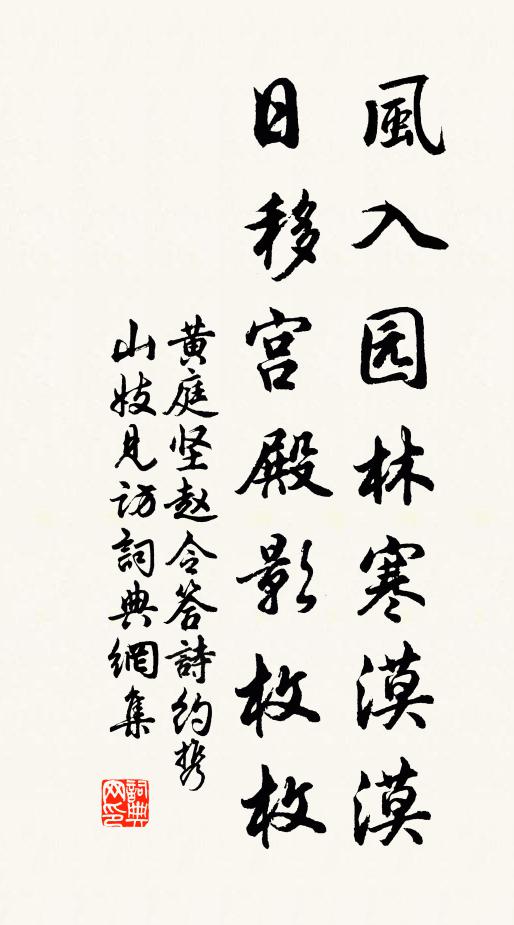 風入园林寒漠漠
日移宫殿影枚枚
黄庭坚赵令答詩约携
山妓見访詞典網集
詞典
网印